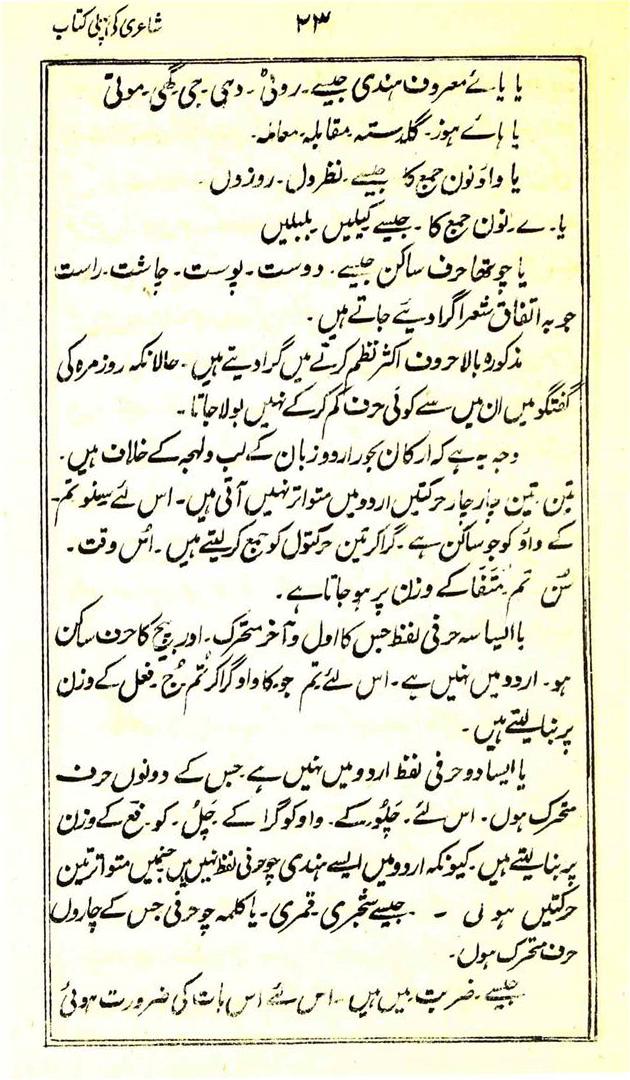 شاعری کی پہلی کتاب
۲۳
یا یائے معروف ہندی جیسے۔ روٹی۔ دہی۔ جی۔ گھی۔ موتی
یا ہائے ہوز۔ گلدستہ۔ مقابلہ۔ معاملہ۔
یا واؤ نون جمع کا جیسے۔ نظروں۔ روزوں۔
یا۔ ے۔ نون جمع کا۔ جیسے کیلیں۔ بلبلیں
یا چوتھا حرف ساکن جیسے۔ دوست۔ پوست۔ چاشت۔ راست
جو بہ اتفاق شعرا گرا دیئے جاتے ہیں۔
مذکورہ بالا حروف اکثر نظم کرنے میں گرا دیتے ہیں۔ حالانکہ روز مرہ کی
گفتگو میں ان میں سے کوئی حرف کم کر کے نہیں بولا جاتا۔
وجہ یہ ہے کہ ارکان بحور اردو زبان کے لب و لہجہ کے خلاف ہیں۔
تین۔ تین چار چار حرکتیں اردو میں متواتر نہیں آتی ہیں۔ اس لئے سنو تم۔
کے واؤ کو جو ساکن ہے۔ گرا کر تین حرکتوں کو جمع کر لیتے ہیں۔ اُس وقت۔
سُنُ تم مُتَفَا کے وزن پر ہو جاتا ہے۔
یا ایسا سہ حرفی لفظ جس کا اول و آخر متحرک۔ اور بیچ کا حرف ساکن
ہو۔ اردو میں نہیں ہے۔ اس لئے تم جو۔ کا واو گرا کر تم جُ۔ فعل کے وزن
پر بنا لیتے ہیں۔
یا ایسا دو حرفی لفظ اردو میں نہیں ہے جس کے دونوں حرف
متحرک ہوں۔ اس لئے۔ چلو کے۔ واو کو گرا کے۔ چَلُ۔ کو۔ فَعَ کے وزن
پر بنا لیتے ہیں۔ کیونکہ اردو میں ایسے ہندی چوحرفی لفظ نہیں ہیں جنمیں متواتر تین
حرکتیں ہوں۔ جیسے شجری۔ قمری۔ یا کلمہ چوحرفی جس کے چاروں
حرف متحرک ہوں۔
جیسے۔ ضربت میں ہیں۔ اس لئے اس بات کی ضرورت ہوئی